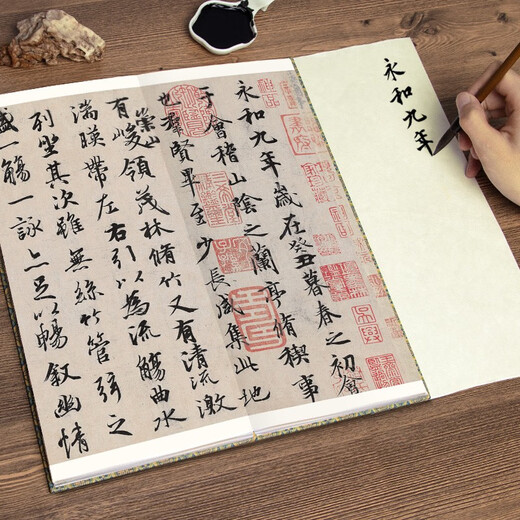 永和九年
永和九年歲在癸丑暮春之初會
于會稽山陰之蘭亭脩稧事
也羣賢畢至少長咸集此地
有崇山峻領茂林脩竹又有清流激
湍暎帶左右引以為流觴曲水
列坐其次雖無絲竹管弦之
盛一觴一詠亦足以暢敘幽情